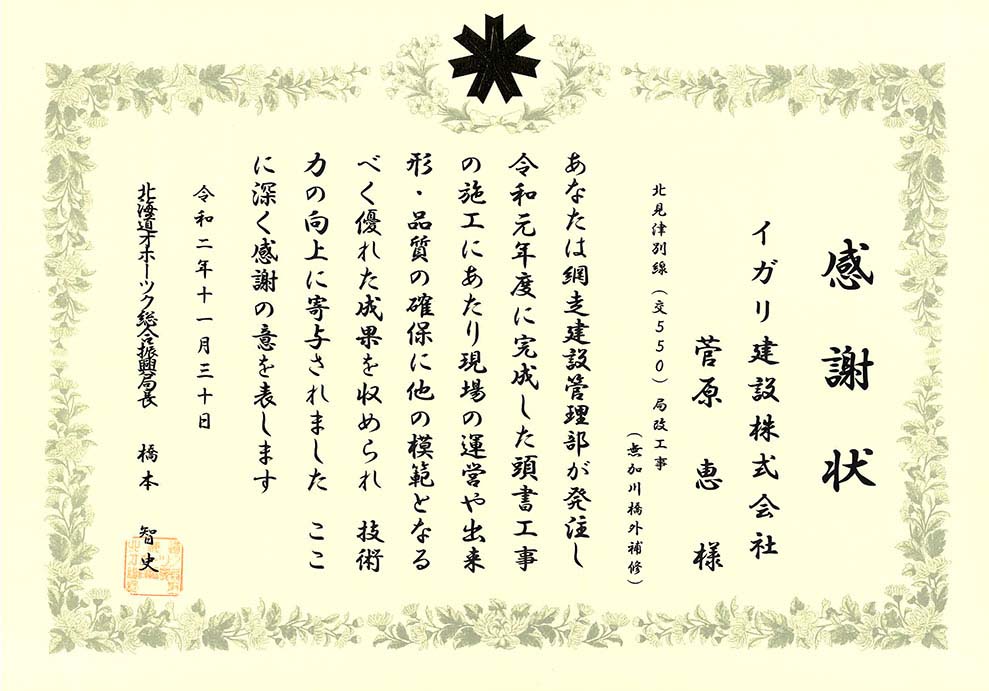 感謝状
イガリ建設株式会社
菅原 恵 様
北見津別線(交550)局改工事
(無加川橋外補修)
あなたは網走建設管理部が発注し
令和元年度に完成した頭書工事
の施工にあたり現場の運営や出来
形・品質の確保に他の模範となる
べく優れた成果を収められ 技術
力の向上に寄与されました ここ
に深く感謝の意を表します
令和二年十一月三十日
北海道オホーツク総合振興局長 橋本 智史